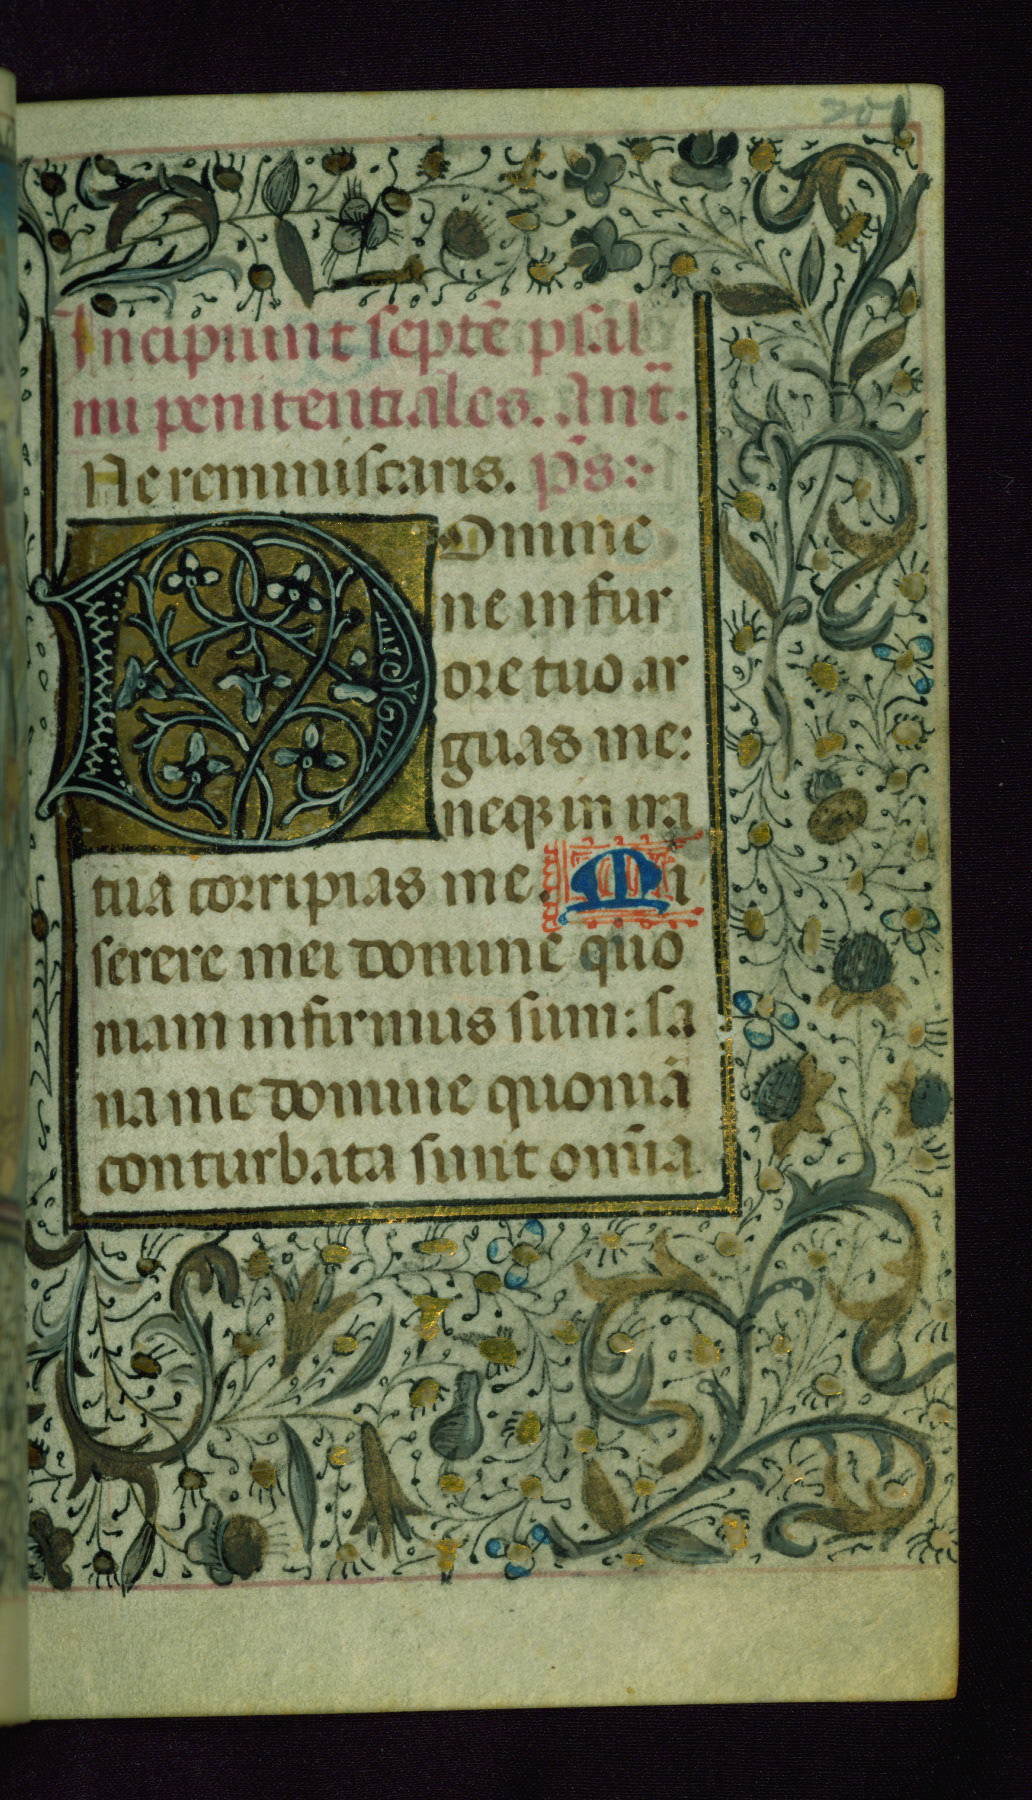 201
Incipiunt septē psal
mi penitentiales. Ant̄.
Ne reminiscaris. ps̄:
Domine
ne in fur
ore tuo ar
guas me:
neqꝫ in ira
tua corripias me. Mi
serere mei domine quo
niam infirmus sum: sa
na me domine quoniā
conturbata sunt om̄ia